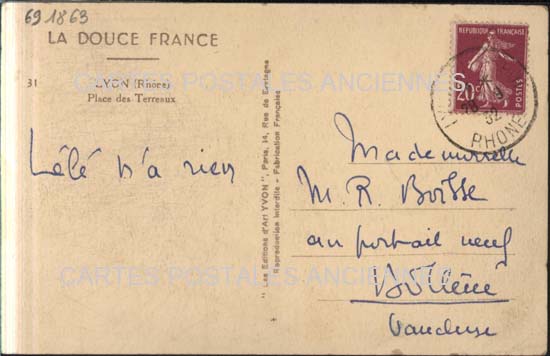 691863
LA DOUCE FRANCE
REPUBLIQUE FRANÇAISE
20c
POSTES
31
LYON (Rhône)
Place des Terreaux
RHONE
CARTES POSTALES ANCIENNES
" Les Editions d'Art YVON", Paris, 14, Rue de Bretagne
Reproduction Interdite - Fabrication Française
n'a rien
Mademoiselle
M. R.
au portail neuf
CARTES POSTALES ANCIENNES
Vaucluse